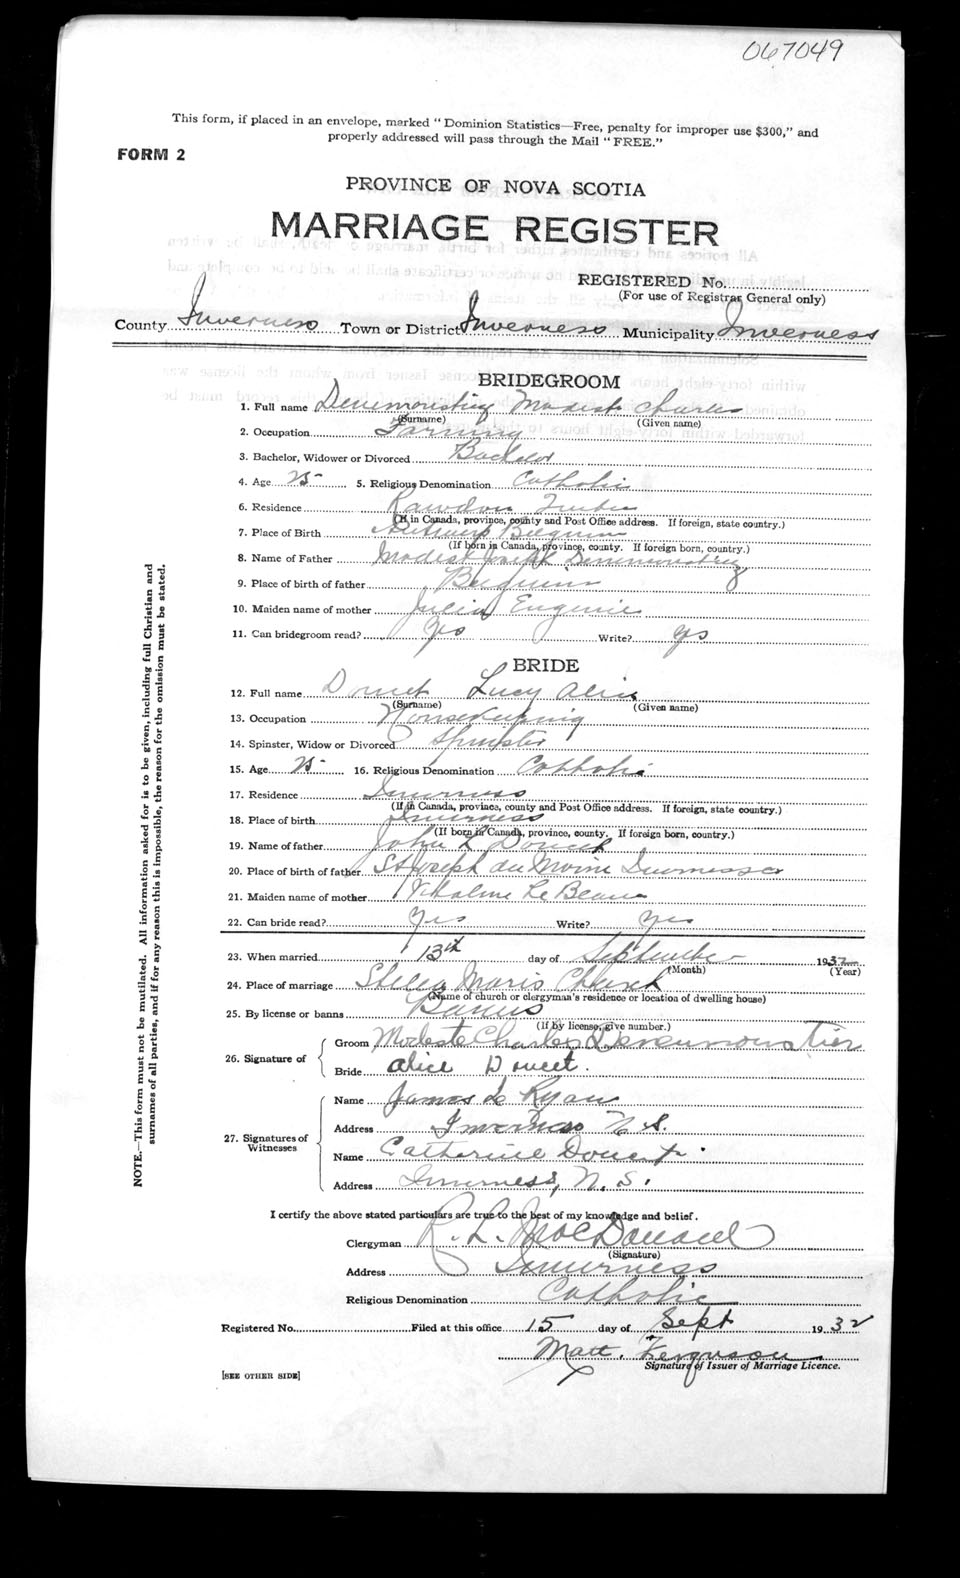 067049
This form, if placed in an envelope, marked “Dominion Statistics—Free, penalty for improper use $300,” and
properly addressed will pass through the Mail “FREE.”
FORM 2
PROVINCE OF NOVA SCOTIA
MARRIAGE REGISTER
REGISTERED No.
(For use of Registrar General only)
County Inverness Town or District Inverness Municipality Inverness
BRIDEGROOM
1. Full name Modest Charles
(Surname) (Given name)
2. Occupation Farming
3. Bachelor, Widower or Divorced Bachelor
4. Age 25 5. Religious Denomination Catholic
6. Residence
(If in Canada, province, county and Post Office address. If foreign, state country.)
7. Place of Birth Antwerp Belgium
(If born in Canada, province, county. If foreign born, country.)
8. Name of Father Modest Joseph
9. Place of birth of father Belgium
10. Maiden name of mother Julia Eugenie
11. Can bridegroom read? Yes Write? yes
BRIDE
12. Full name Doucet Lucy Alice
(Surname) (Given name)
13. Occupation Housekeeping
14. Spinster, Widow or Divorced Spinster
15. Age 25 16. Religious Denomination Catholic
17. Residence Inverness
(If in Canada, province, county and Post Office address. If foreign, state country.)
18. Place of birth Inverness
(If born in Canada, province, county. If foreign born, country.)
19. Name of father John L Doucet
20. Place of birth of father St Joseph du Moine Inverness Co
21. Maiden name of mother Le Beau
22. Can bride read? Yes Write? Yes
23. When married 13th day of September 1932
(Month) (Year)
24. Place of marriage Stella Maris Church
(Name of church or clergyman's residence or location of dwelling house)
25. By license or banns Banns
(If by license, give number.)
26. Signature of
Groom Modeste Charles Devenmoustier
Bride Alice Doucet.
27. Signatures of Witnesses
Name James Ryan
Address Inverness N.S.
Name Catherine Doucet
Address Inverness, N.S.
I certify the above stated particulars are true to the best of my knowledge and belief.
Clergyman R. L. MacDonald
(Signature)
Address Inverness
Religious Denomination Catholic
Registered No. Filed at this office 15 day of Sept 1932
Matt. Ferguson
Signature of Issuer of Marriage Licence.
[SEE OTHER SIDE]
NOTE.—This form must not be mutilated. All information asked for is to be given, including full Christian and
surnames of all parties, and if for any reason this is impossible, the reason for the omission must be stated.